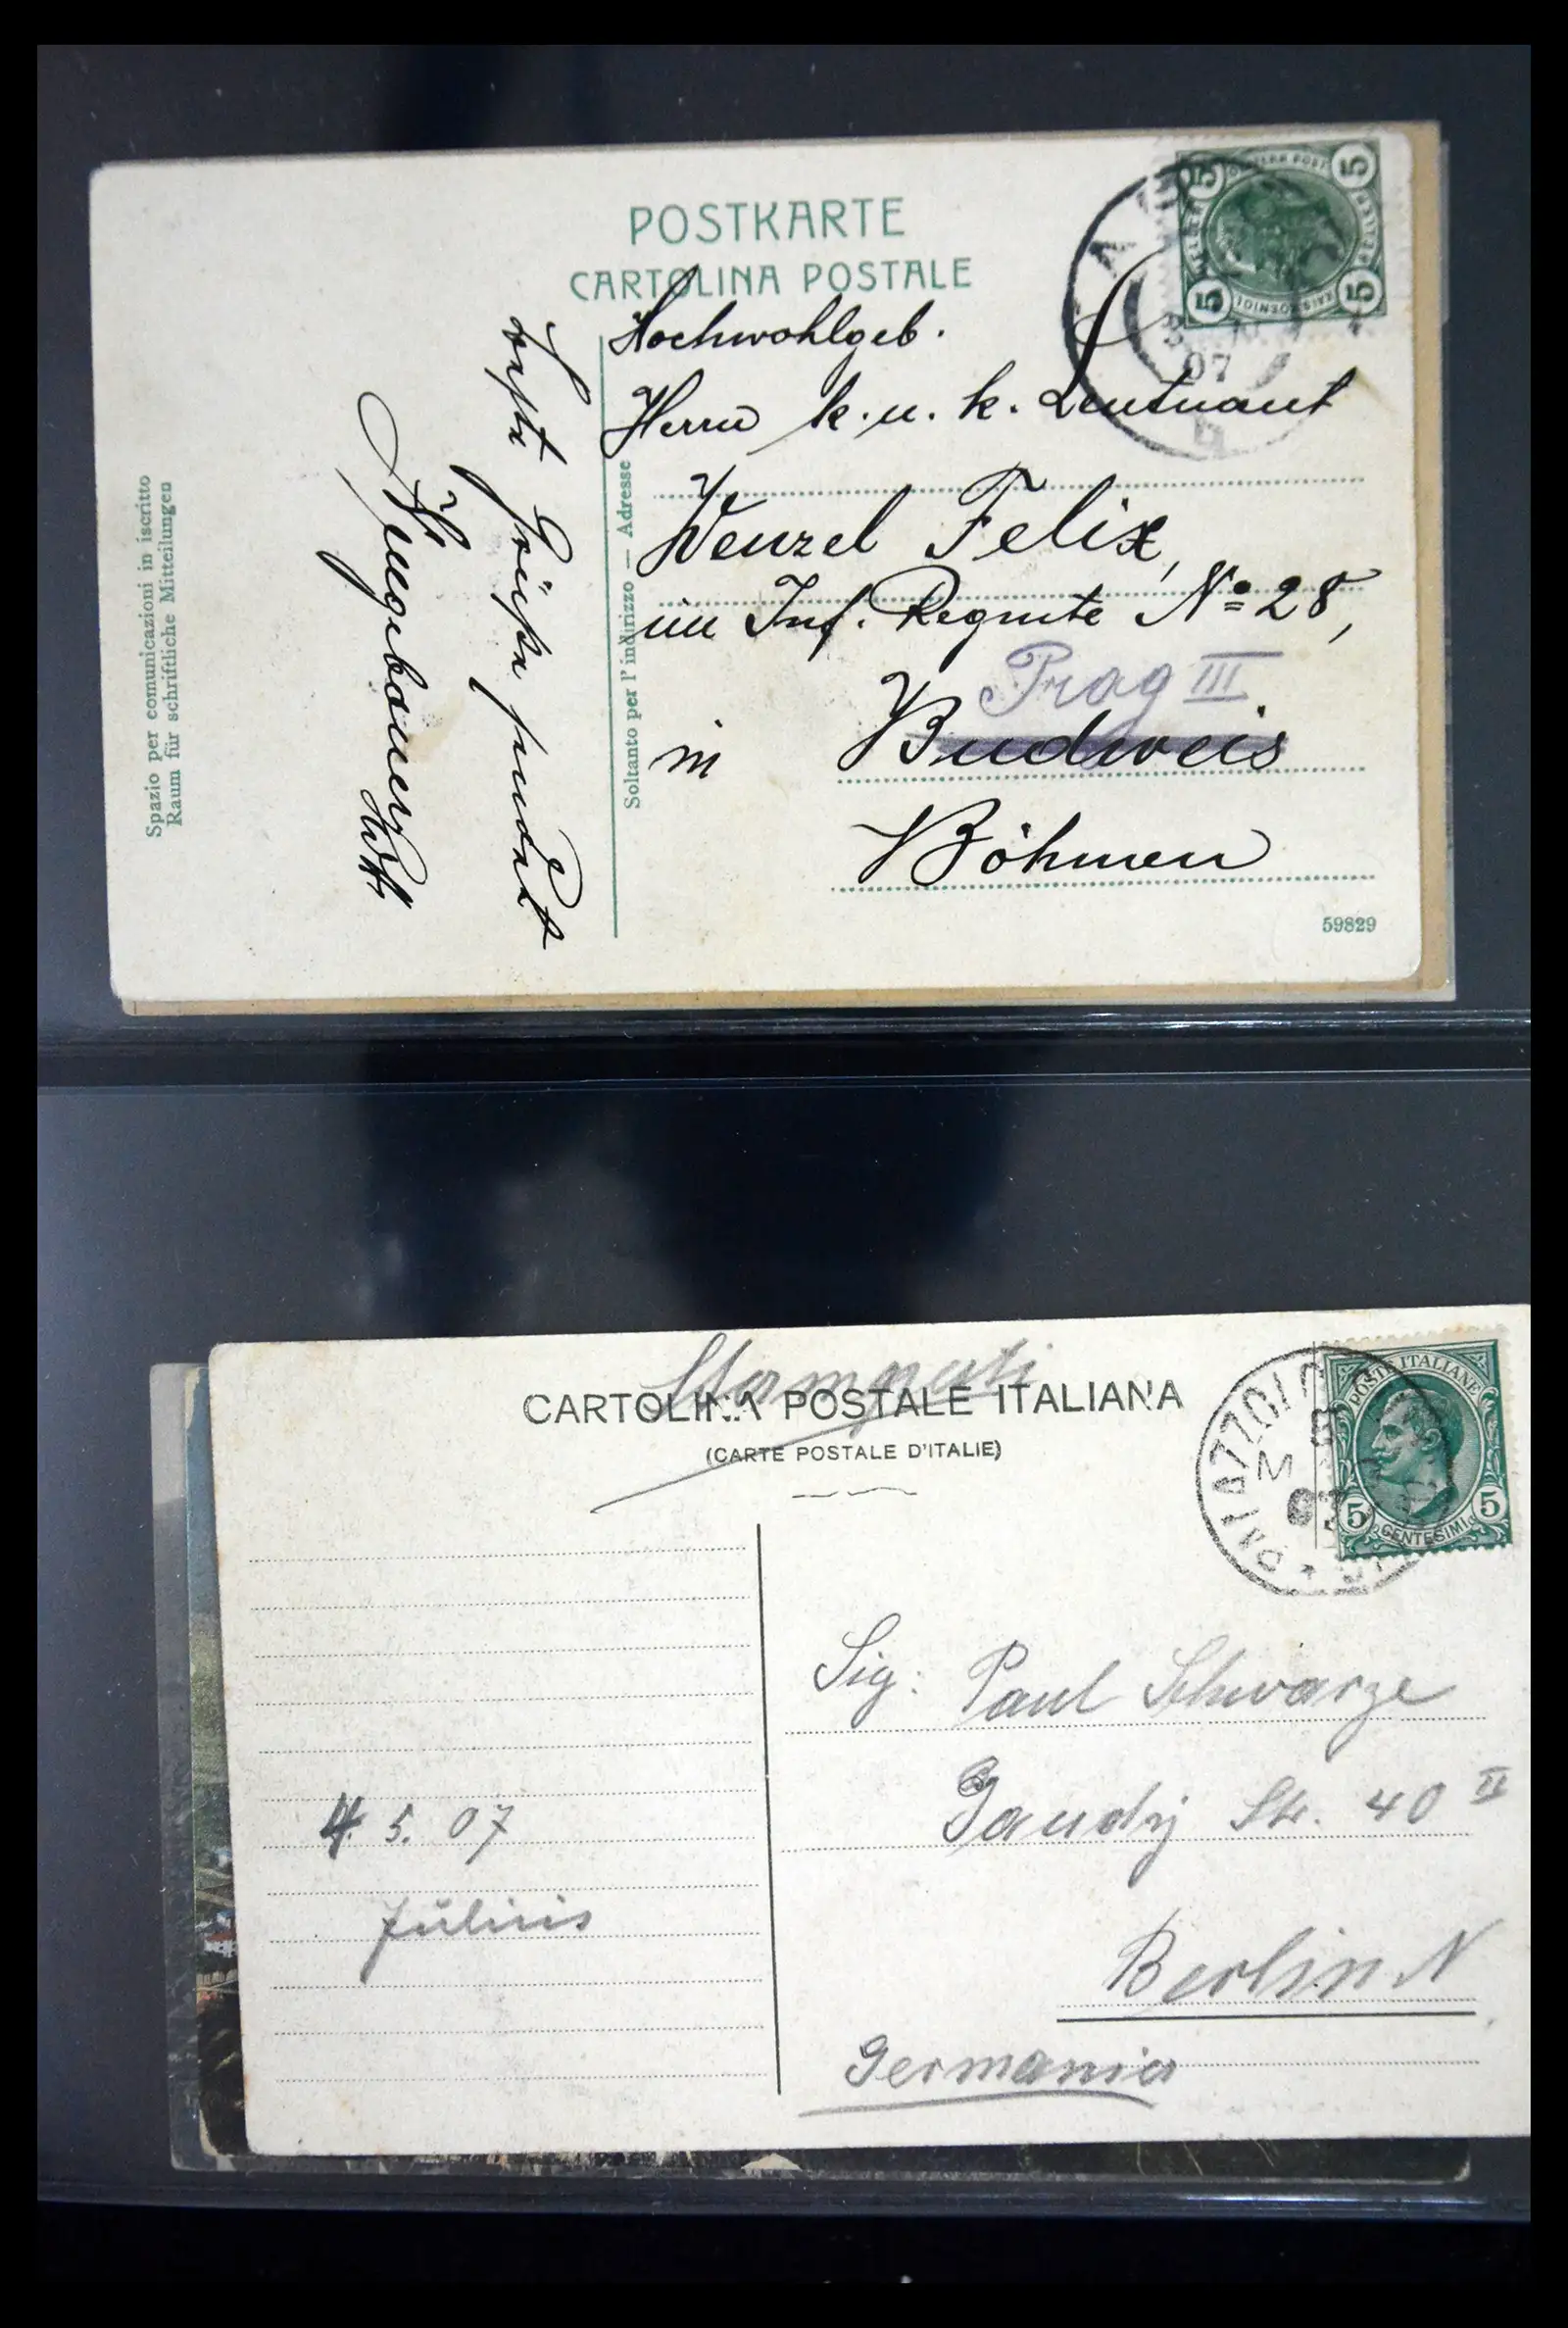 POSTKARTE
CARTOLINA POSTALE
Hochwohlgeb.
Herrn k. u. k. Leutnant
Wenzel Felix,
im Inf. Regmte No 28,
Prag III
in Budweis
Böhmen
59829
Soltanto per l'indirizzo — Adresse
Beste Grüße sendet
Spazio per comunicazioni in iscritto
Raum für schriftliche Mitteilungen
5 5 5 5
07
Stampati
CARTOLINA POSTALE ITALIANA
(CARTE POSTALE D'ITALIE)
POSTE ITALIANE
5 5
CENTESIMI
07
Sig: Paul Schwarze
Gaudy Str. 40 II
Berlin N
Germania
4. 5. 07
Julius